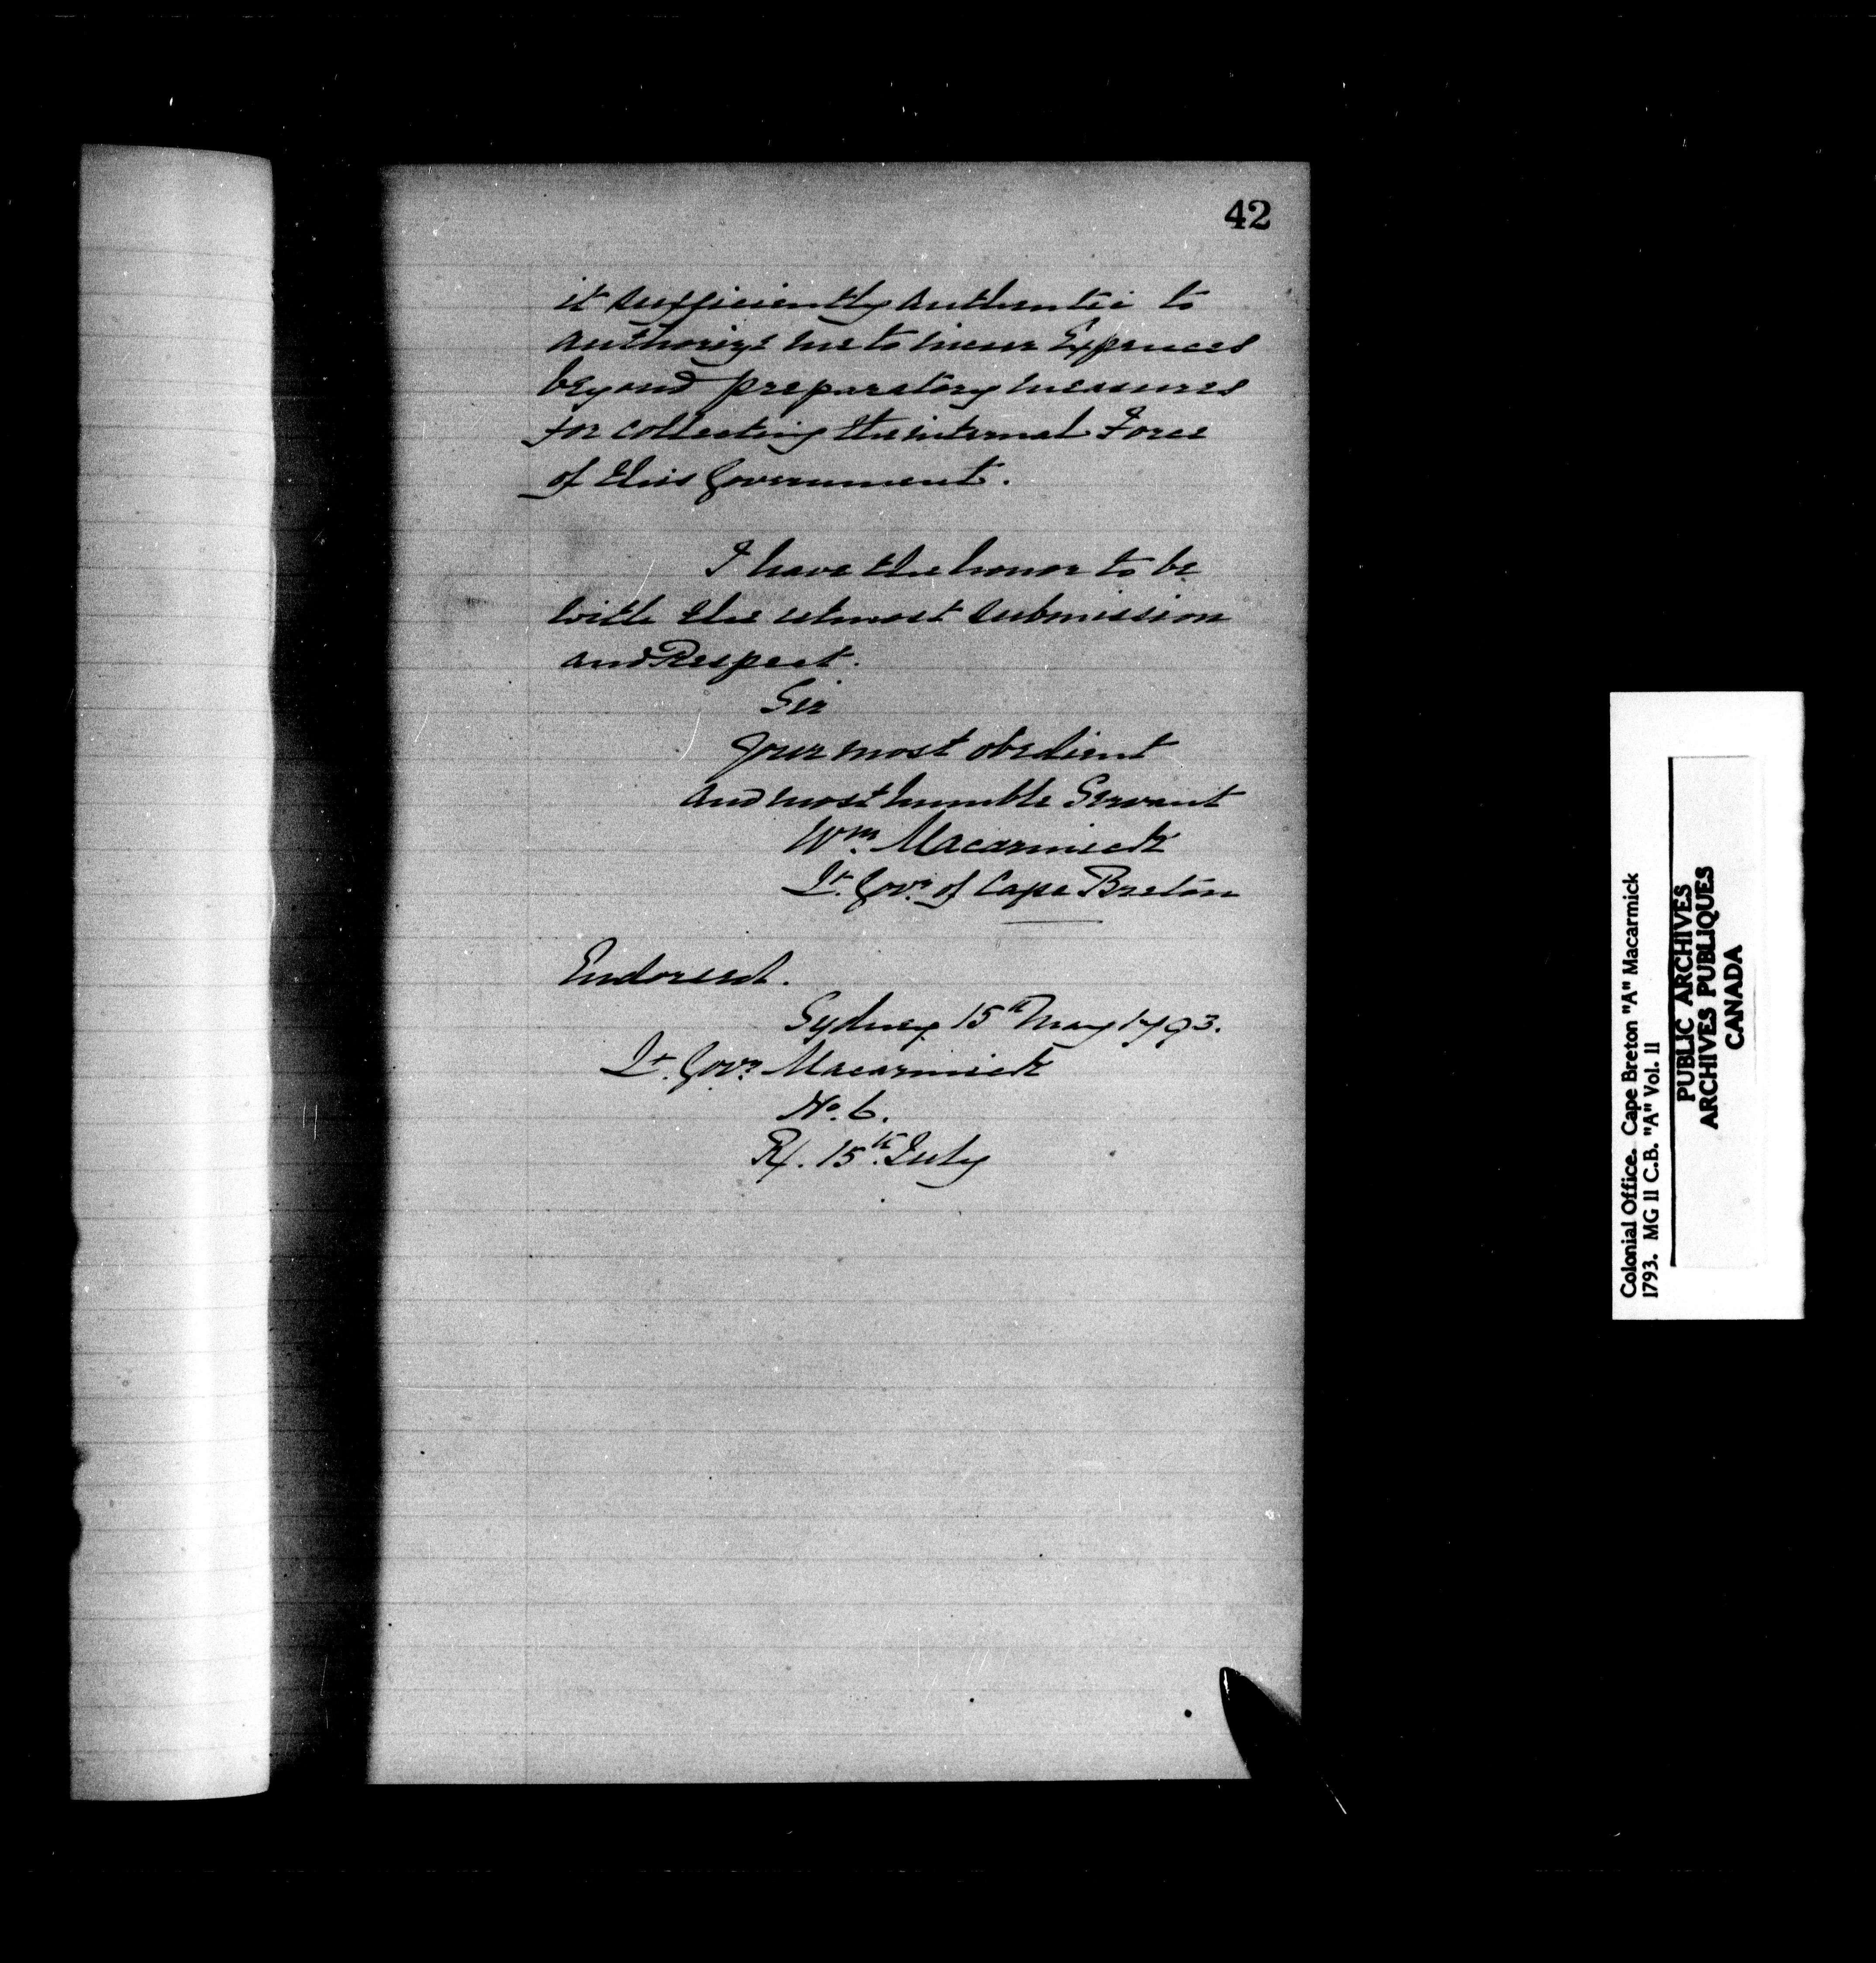 42
it sufficiently authentic to
authorize me to incur Expences
beyond preparatory measures
for collecting the internal Force
of this Government.
I have the honor to be
with the utmost submission
and Respect.
Sir
Your most obedient
and most humble Servant
Wm. Macarmick
Lt. Govr. of Cape Breton
Endorsed.
Sydney 15th May 1793.
Lt. Govr. Macarmick
No. 6.
Rx. 15th July
Colonial Office. Cape Breton "A" Macarmick
1793. MG 11 C.B. "A" Vol. 11
PUBLIC ARCHIVES
ARCHIVES PUBLIQUES
CANADA